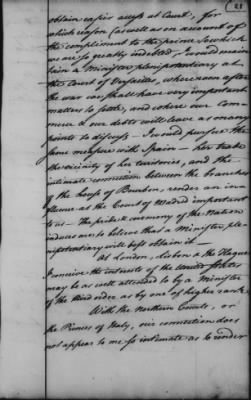 obtain easier access at Court, for
which reason (as well as on account of
the compliment to the prince to which
we are so greatly indebted) I would main-
tain a Minister plenipotentiary at
the Court of Versailles, where soon after
the war we shall have very important
matters to settle, and where our com-
merce & our debts will leave us many
points to discuss — I would pursue the
same measure with Spain — her trade
the vicinity of her territories, and the
intimate connection between the branches
of the house of Bourbon, render an in-
fluence at the Court of Madrid important
to us — The pride & ceremony of the Nation
induces me to believe that a Minister ple-
nipotentiary will best obtain it —
At London, Lisbon & the Hague
I conceive the interests of the United States
may be as well attended to by a Minister
of the third order as by one of higher rank
With the Northern Courts, or
the Princes of Italy, our connection does
not appear to me so intimate as to render